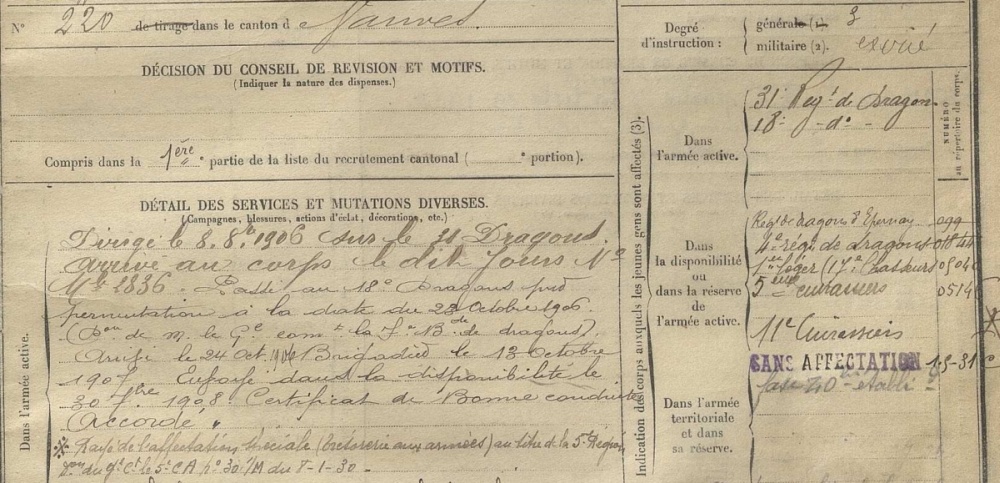 N° 220 de tirage dans le canton d
DÉCISION DU CONSEIL DE REVISION ET MOTIFS.
(Indiquer la nature des dispenses.)
Compris dans la 1ère partie de la liste du recrutement cantonal (      ° portion).
DÉTAIL DES SERVICES ET MUTATIONS DIVERSES.
(Campagnes, blessures, actions d'éclat, décorations, etc.)
Dans l'armée active.
Dirigé le 8. 8bre 1906 sur le 31 Dragons.
Arrivé au corps le dit Jours No
Mle 1836. Passé au 18e Dragons par
permutation à la date du 23 Octobre 1906.
de M. le Gal comt la Bde de dragons)
Arrivé le 24 Oct. 1906 Brigadier le 13 Octobre
1907. dans la disponibilité le
30 7bre 1908. Certificat de Bonne conduite
Accordé.
Rayé de l'affectation spéciale (trésorerie aux armées) au titre de la 5e Région
du Gal Ct le 5e CA No 30/M du 8-1-30.-
Degré d'instruction :
générale (1). 3
militaire (2). exercé
Indication des corps auxquels les jeunes gens sont affectés (3).
NUMÉRO
au répertoire du corps.
Dans
l'armée active.
31e Regt de Dragon
18e -do-
Dans
la disponibilité
ou
dans la réserve
de
l'armée active.
Regt de dragons d'Epernay 099
4e regt de dragons
1er léger (17e Chasseurs
5ème cuirassiers 0514
11e Cuirassiers
SANS AFFECTATION
Dans l'armée
territoriale
et dans
sa réserve.